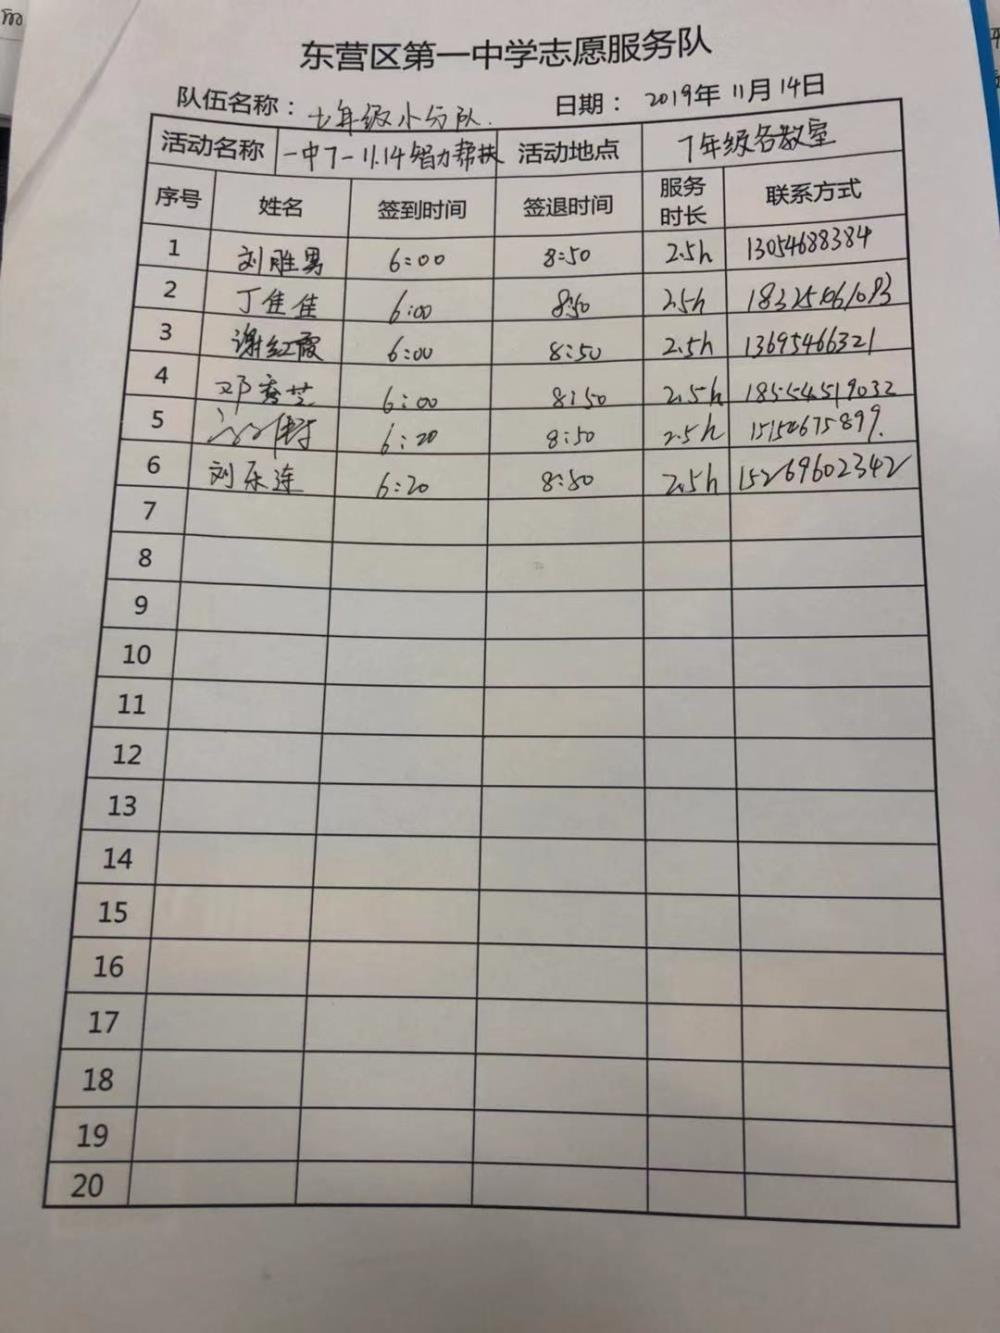 东营区第一中学志愿服务队
队伍名称：七年级小分队. 日期：2019年11月14日
活动名称 一中7-11.14智力帮扶 活动地点 7年级各教室
序号 姓名 签到时间 签退时间 服务时长 联系方式
1 刘胜男 6:00 8:50 2.5h 13054688384
2 丁佳佳 6:00 8:50 2.5h
3 谢红霞 6:00 8:50 2.5h 13695466321
4 邓秀芝 6:00 8:50 2.5h 18554519032
5 6:20 8:50 2.5h 15154675899.
6 刘乐连 6:20 8:50 2.5h 15269602342
7
8
9
10
11
12
13
14
15
16
17
18
19
20